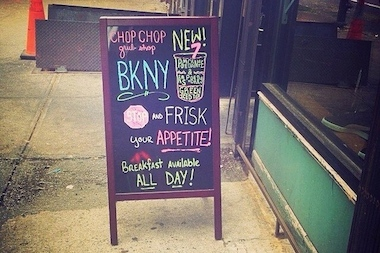 CHOP CHOP
grub shop
BKNY
NEW!
GREEN
STOP AND FRISK
YOUR APPETITE!
Breakfast AVAILABLE
ALL DAY!